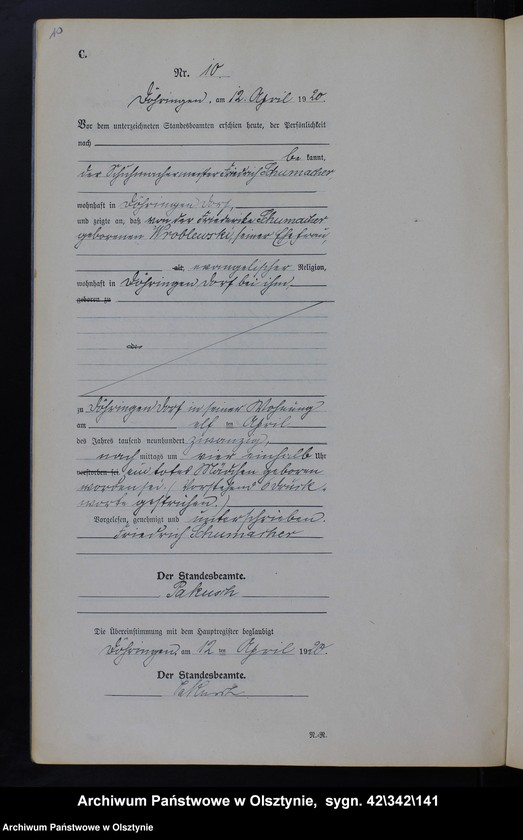 10
C.
Nr. 10.
Döhringen, am 12. April 1920.
Vor dem unterzeichneten Standesbeamten erschien heute, der Persönlichkeit
nach
be kannt,
der Schuhmachermeister Friedrich Schumacher,
wohnhaft in Döhringen Dorf,
und zeigte an, daß von der Friederike Schumacher
geborenen Wroblewski, seiner Ehefrau,
alt, evangelischer Religion,
wohnhaft in Döhringen Dorf bei ihm
geboren zu
oder
zu Döhringen Dorf in seiner Wohnung
am elf ten April
des Jahres tausend neunhundert zwanzig,
nach mittags um vier einhalb Uhr
verstorben sei. ein totes Mädchen geboren
worden sei. (Vorstehend Druck-
worte gestrichen.)
Vorgelesen, genehmigt und unterschrieben.
Friedrich Schumacher
Der Standesbeamte.
Der Übereinstimmung mit dem Hauptregister beglaubigt
Döhringen, am 12 ten April 1920.
Der Standesbeamte.
N.-R.
Archiwum Państwowe w Olsztynie, sygn. 42\342\141
Archiwum Państwowe w Olsztynie